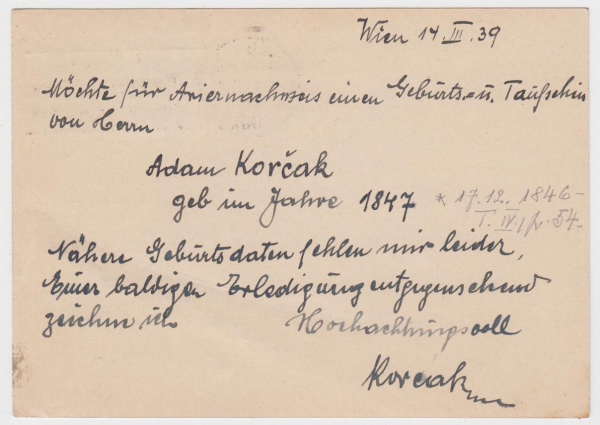 Wien 14.III.39
Möchte für Ariernachweis einen Geburts- u. Taufschein
von Herrn
Adam Korčak
geb im Jahre 1847 * 17.12. 1846-
T. IV. f. 54-
Nähere Geburtsdaten fehlen mir leider,
Einer baldigen Erledigung entgegensehend
zeichne ich Hochachtungsvoll
Korčak